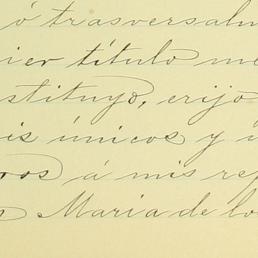 ó trasversalm
ier título me
stituyo, erijo
is únicos y u
ros á mis re
Maria de lo